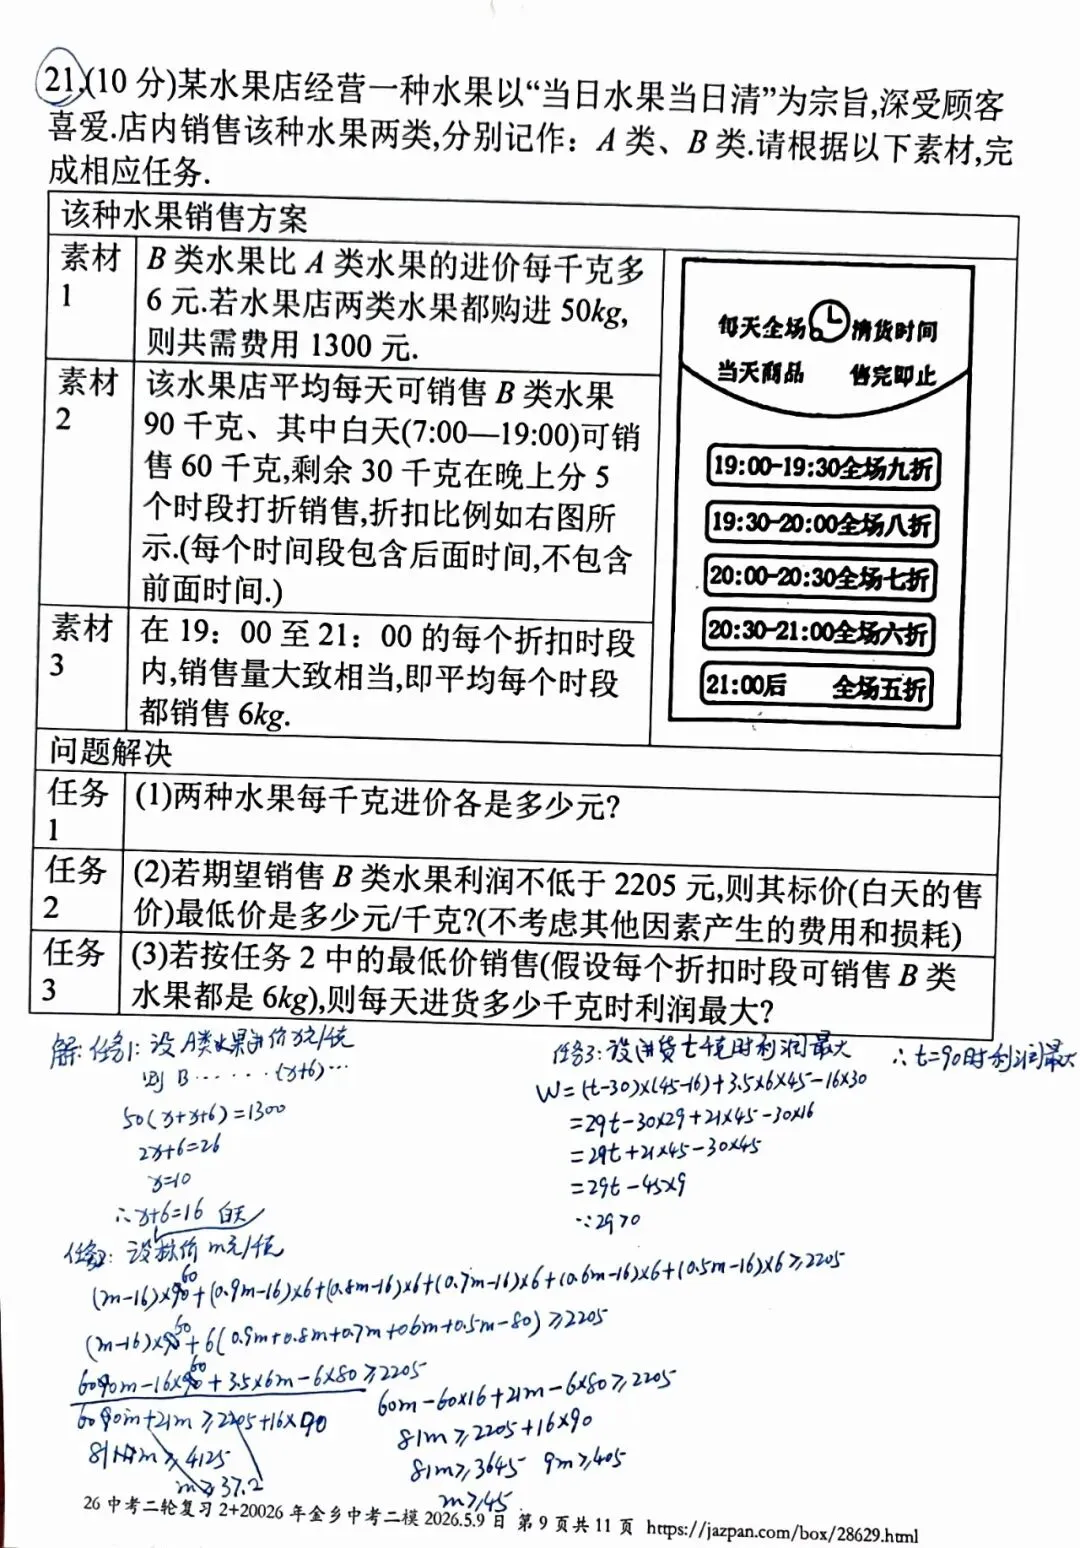 21.(10 分)某水果店经营一种水果以“当日水果当日清”为宗旨,深受顾客
喜爱.店内销售该种水果两类,分别记作：A 类、B 类.请根据以下素材,完
成相应任务.
该种水果销售方案
素材
1
B 类水果比 A 类水果的进价每千克多
6 元.若水果店两类水果都购进 50kg,
则共需费用 1300 元.
素材
2
该水果店平均每天可销售 B 类水果
90 千克、其中白天(7:00—19:00)可销
售 60 千克,剩余 30 千克在晚上分 5
个时段打折销售,折扣比例如右图所
示.(每个时间段包含后面时间,不包含
前面时间.)
素材
3
在 19：00 至 21：00 的每个折扣时段
内,销售量大致相当,即平均每个时段
都销售 6kg.
每天全场 清货时间
当天商品 售完即止
19:00-19:30全场九折
19:30-20:00全场八折
20:00-20:30全场七折
20:30-21:00全场六折
21:00后 全场五折
问题解决
任务
1
(1)两种水果每千克进价各是多少元?
任务
2
(2)若期望销售 B 类水果利润不低于 2205 元,则其标价(白天的售
价)最低价是多少元/千克?(不考虑其他因素产生的费用和损耗)
任务
3
(3)若按任务 2 中的最低价销售(假设每个折扣时段可销售 B 类
水果都是 6kg),则每天进货多少千克时利润最大?
解:任务1:设A类水果进价x元/千克
则 B……(x+6)…
50(x+x+6)=1300
2x+6=26
x=10
∴x+6=16 白天
任务2:设标价m元/千克
(m-16)×60+(0.9m-16)×6+(0.8m-16)×6+(0.7m-16)×6+(0.6m-16)×6+(0.5m-16)×6≥2205
(m-16)×60+6(0.9m+0.8m+0.7m+0.6m+0.5m-80)≥2205
60m-16×60+3.5×6m-6×80≥2205
60m+21m≥2205+16×90
81m≥4125
m≥37.2
60m-60×16+21m-6×80≥2205
81m≥2205+16×90
81m≥3645 9m≥405
m≥45
任务3:设进货t千克时利润最大
W=(t-30)×(45-16)+3.5×6×45-16×30
=29t-30×29+21×45-30×16
=29t+21×45-30×45
=29t-45×9
∵29>0
∴t=90时利润最大
26 中考二轮复习 2+20026 年金乡中考二模 2026.5.9 日 第 9 页共 11 页 https://jazpan.com/box/28629.html